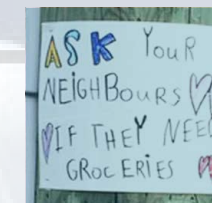 ASK YouR
NEiGHBouRS
IF THEY NEE
GRoCERiES